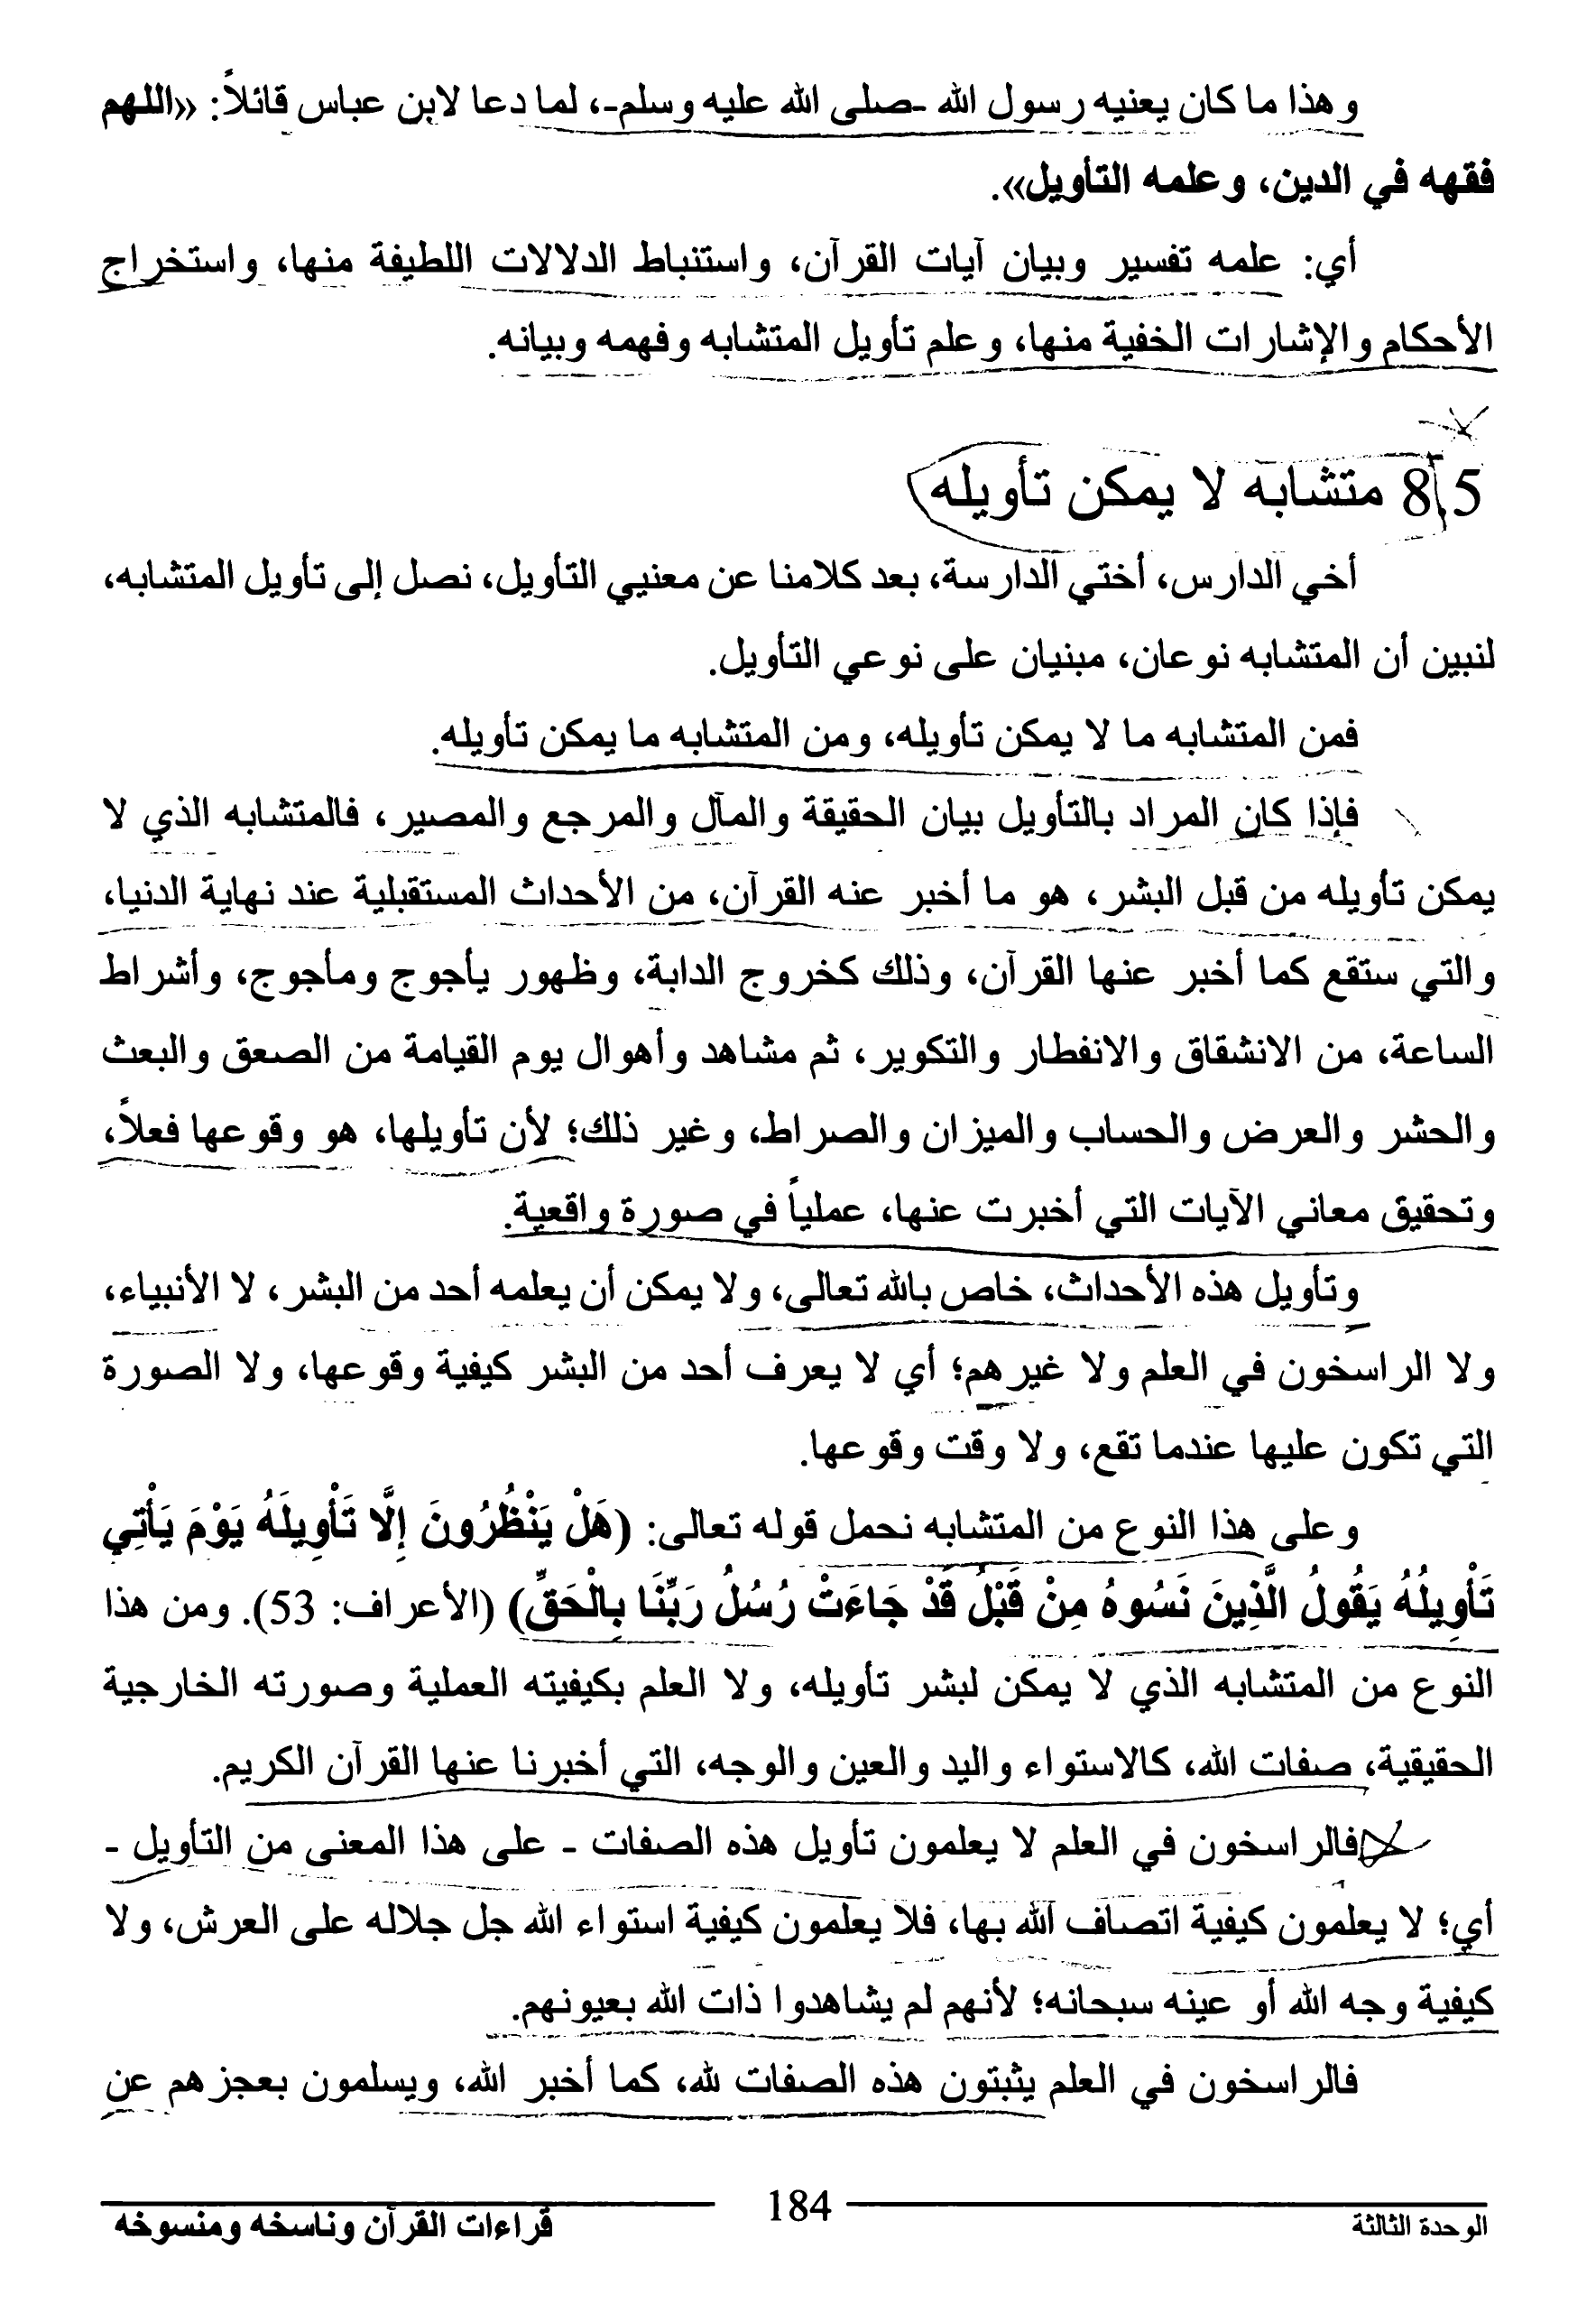 وهذا ما كان يعنيه رسول الله -صلى الله عليه وسلم-، لما دعا لابن عباس قائلاً: «اللهم
فقهه في الدين، وعلمه التأويل».
أي: علمه تفسير وبيان آيات القرآن، واستنباط الدلالات اللطيفة منها، واستخراج
الأحكام والإشارات الخفية منها، وعلم تأويل المتشابه وفهمه وبيانه.
8\5 متشابه لا يمكن تأويله
أخي الدارس، أختي الدارسة، بعد كلامنا عن معنيي التأويل، نصل إلى تأويل المتشابه،
لنبين أن المتشابه نوعان، مبنيان على نوعي التأويل.
فمن المتشابه ما لا يمكن تأويله، ومن المتشابه ما يمكن تأويله.
فإذا كان المراد بالتأويل بيان الحقيقة والمآل والمرجع والمصير، فالمتشابه الذي لا
يمكن تأويله من قبل البشر، هو ما أخبر عنه القرآن، من الأحداث المستقبلية عند نهاية الدنيا،
والتي ستقع كما أخبر عنها القرآن، وذلك كخروج الدابة، وظهور يأجوج ومأجوج، وأشراط
الساعة، من الانشقاق والانفطار والتكوير، ثم مشاهد وأهوال يوم القيامة من الصعق والبعث
والحشر والعرض والحساب والميزان والصراط، وغير ذلك؛ لأن تأويلها، هو وقوعها فعلاً،
وتحقيق معاني الآيات التي أخبرت عنها، عملياً في صورة واقعية.
وتأويل هذه الأحداث، خاص بالله تعالى، ولا يمكن أن يعلمه أحد من البشر، لا الأنبياء،
ولا الراسخون في العلم ولا غيرهم؛ أي لا يعرف أحد من البشر كيفية وقوعها، ولا الصورة
التي تكون عليها عندما تقع، ولا وقت وقوعها.
وعلى هذا النوع من المتشابه نحمل قوله تعالى: (هَلْ يَنْظُرُونَ إِلَّا تَأْوِيلَهُ يَوْمَ يَأْتِي
تَأْوِيلُهُ يَقُولُ الَّذِينَ نَسُوهُ مِنْ قَبْلُ قَدْ جَاءَتْ رُسُلُ رَبِّنَا بِالْحَقِّ) (الأعراف: 53). ومن هذا
النوع من المتشابه الذي لا يمكن لبشر تأويله، ولا العلم بكيفيته العملية وصورته الخارجية
الحقيقية، صفات الله، كالاستواء واليد والعين والوجه، التي أخبرنا عنها القرآن الكريم.
فالراسخون في العلم لا يعلمون تأويل هذه الصفات - على هذا المعنى من التأويل -
أي؛ لا يعلمون كيفية اتصاف الله بها، فلا يعلمون كيفية استواء الله جل جلاله على العرش، ولا
كيفية وجه الله أو عينه سبحانه؛ لأنهم لم يشاهدوا ذات الله بعيونهم.
فالراسخون في العلم يثبتون هذه الصفات لله، كما أخبر الله، ويسلمون بعجزهم عن
الوحدة الثالثة 184 قراءات القرآن وناسخه ومنسوخه